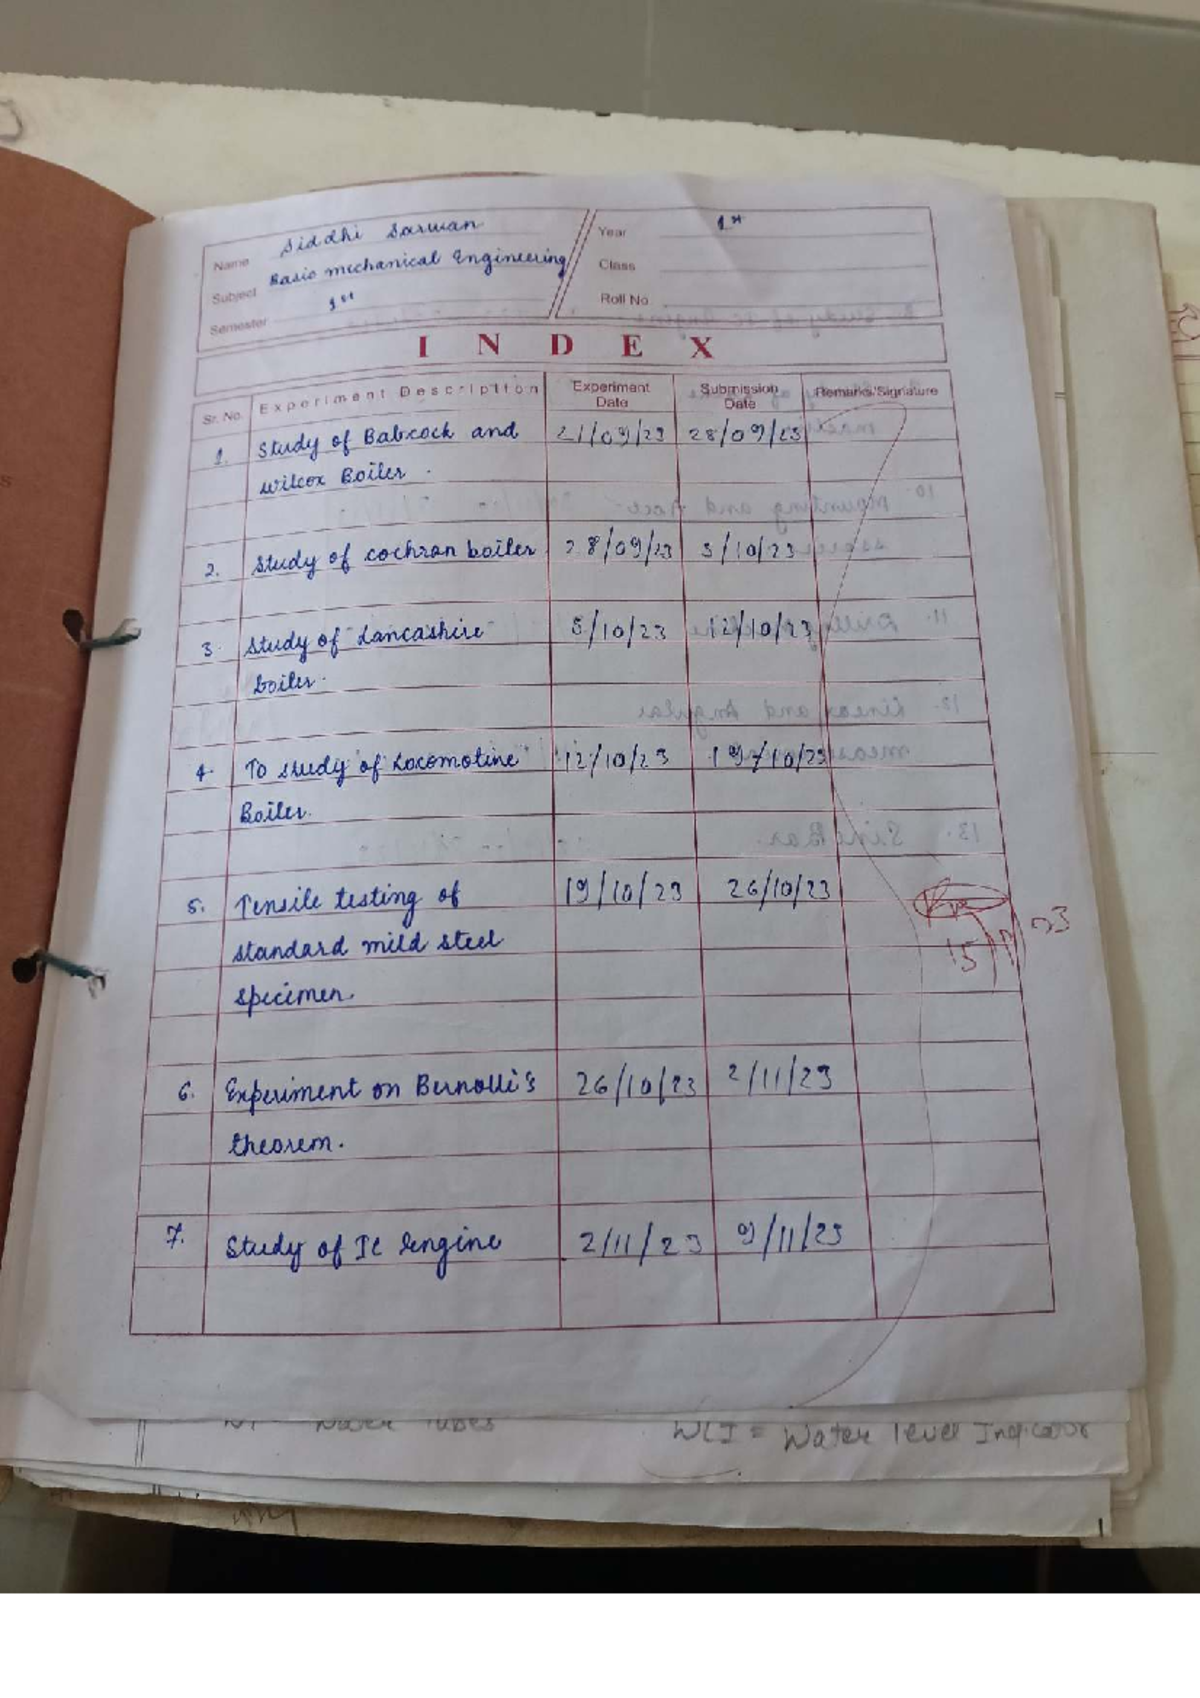 Name Siddhi Sarwan
Subject Basic mechanical Engineering
Semester 1st
Year 1st
Class
Roll No
INDEX
Sr. No. Experiment Description Experiment Date Submission Date Remarks/Signature
1. Study of Babcock and 21/09/23 28/09/23
wilcox Boiler.
2. Study of cochran boiler 28/09/23 5/10/23
3. Study of Lancashire 5/10/23 12/10/23
boiler.
4. To study of Locomotine 12/10/23 19/10/23
Boiler.
5. Tensile testing of 19/10/23 26/10/23
standard mild steel
specimen.
6. Experiment on Bernolli's 26/10/23 2/11/23
theorem.
7. Study of IC Engine 2/11/23 9/11/23
Water Tubes WLI = Water level Indicator